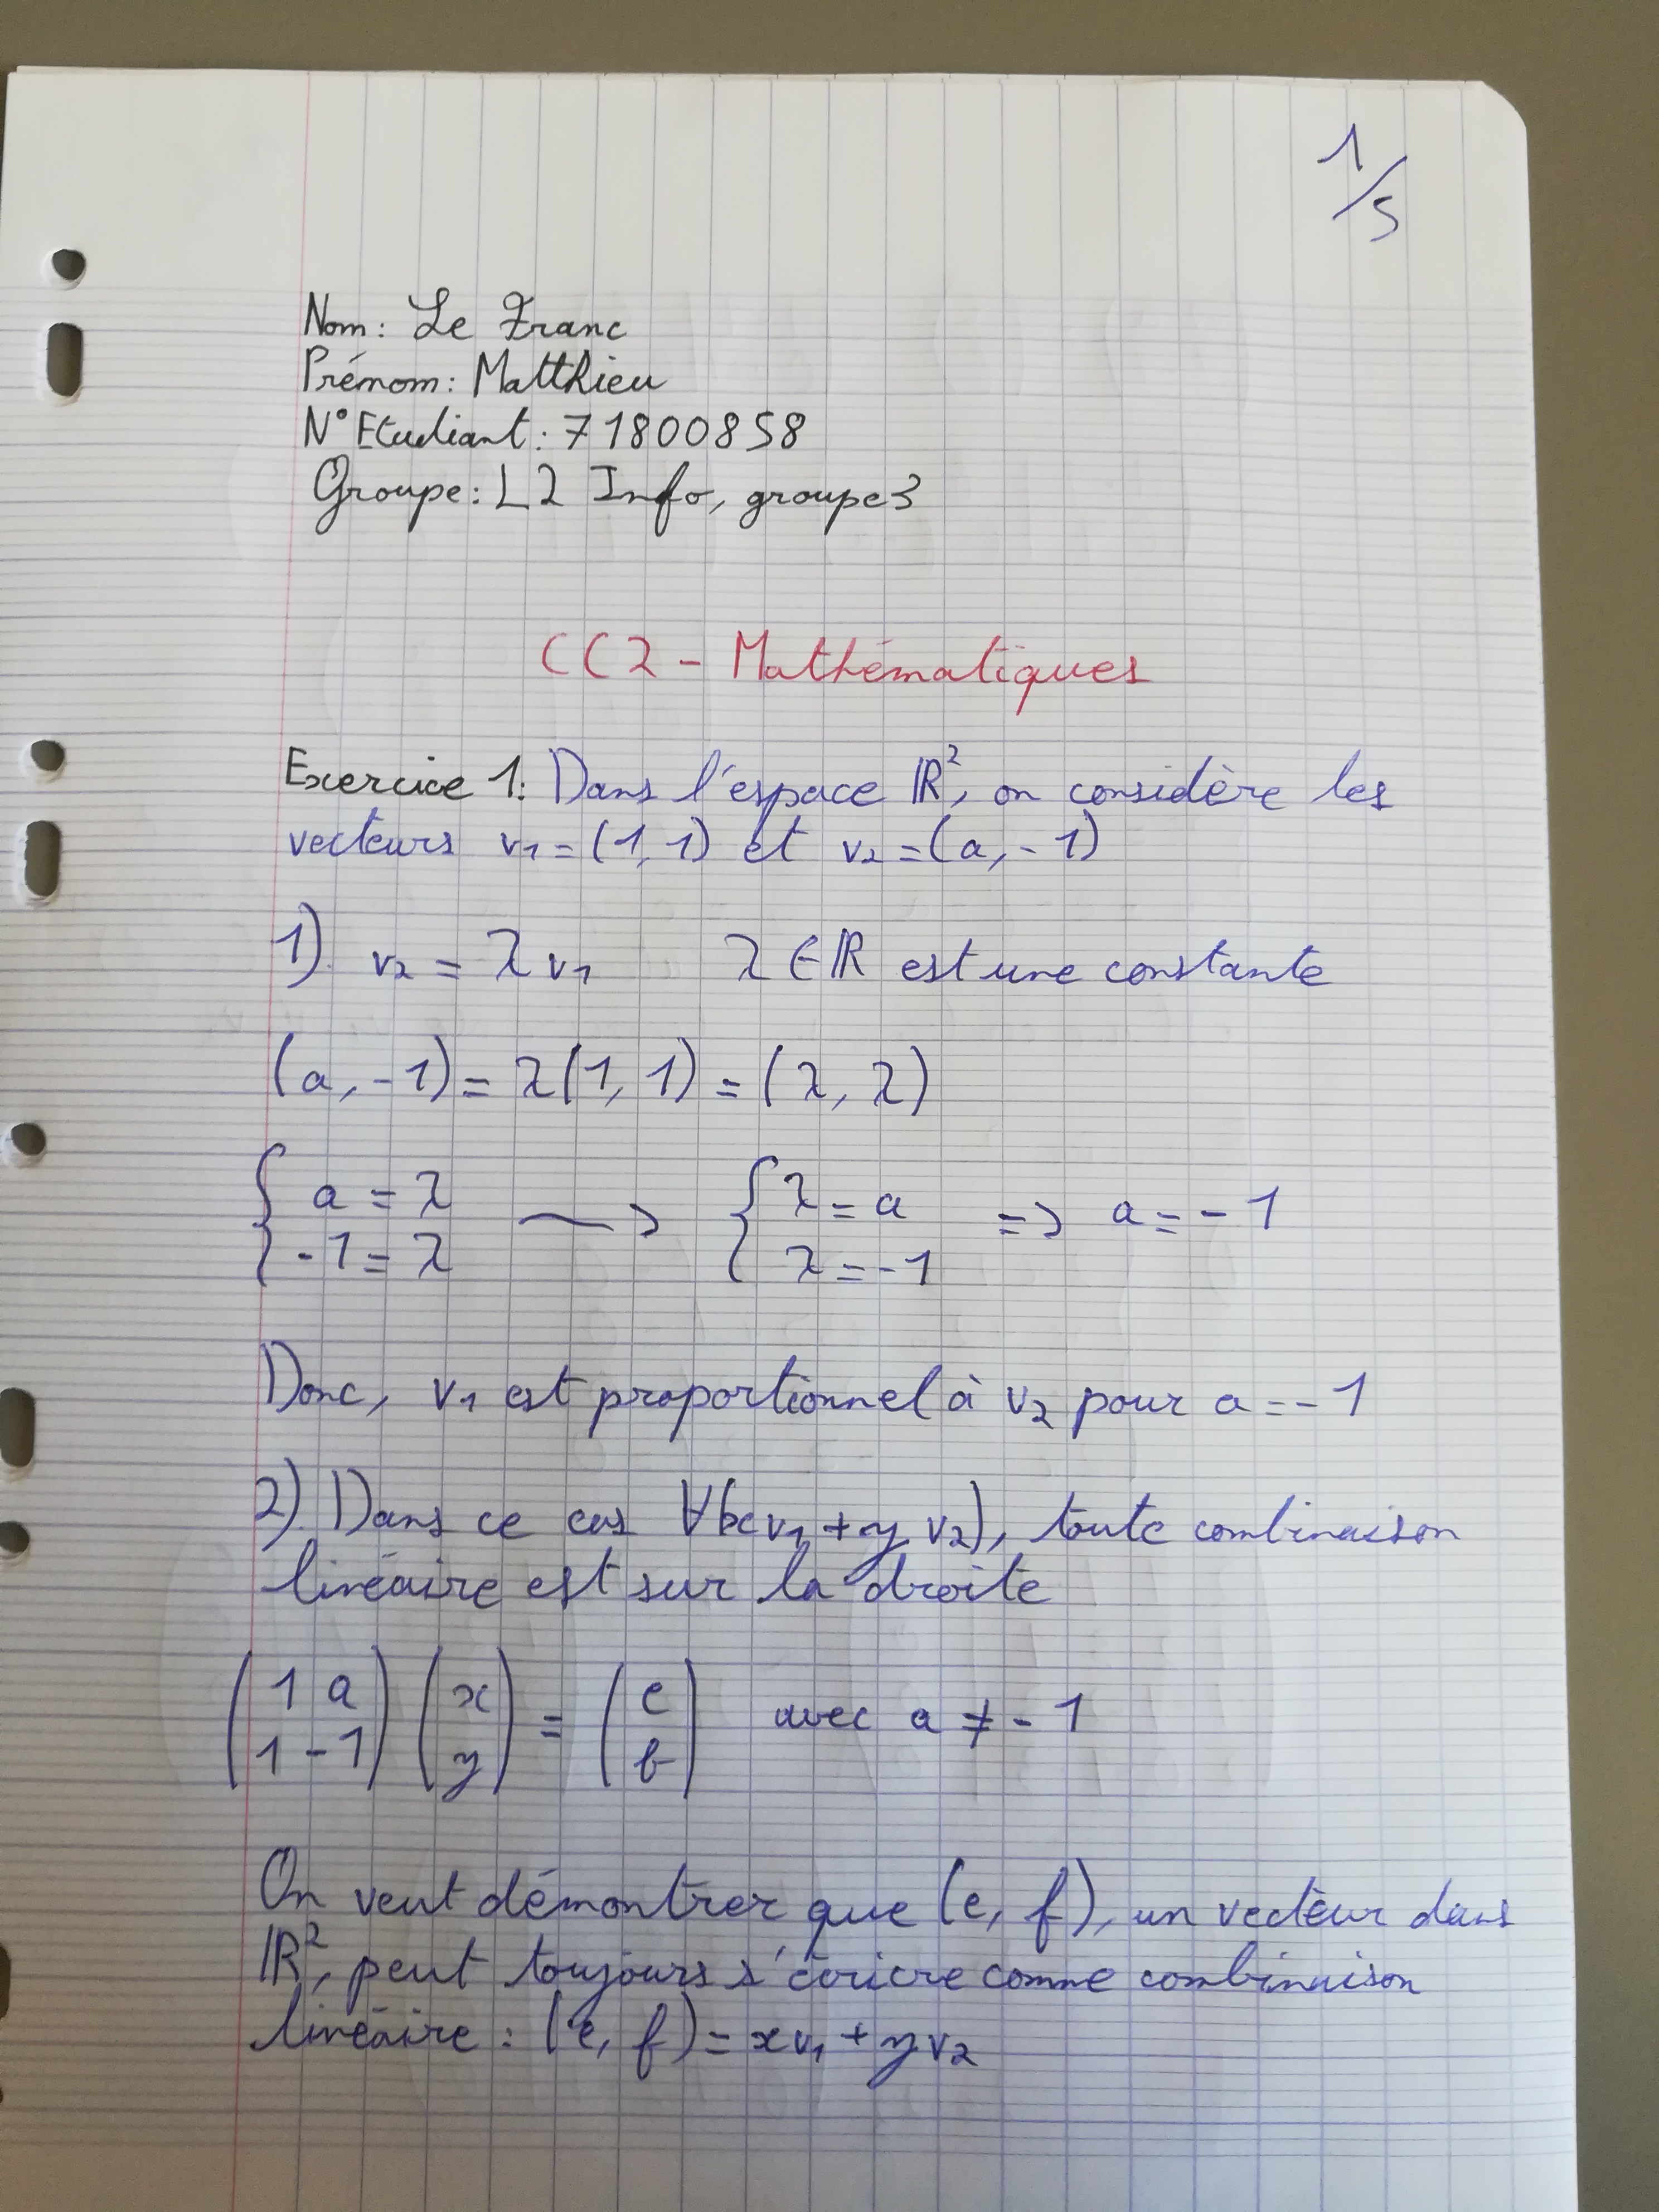 1/5
Nom: Le Franc
Prénom: Matthieu
N°Etudiant: 71800858
Groupe: L2 Info, groupe3
CC2 - Mathématiques
Exercice 1: Dans l'espace ℝ², on considère les
vecteurs v₁=(1,1) et v₂=(a,-1)
1) v₂ = λv₁ λ∈ℝ est une constante
(a,-1)=λ(1,1)=(λ,λ)
{ a=λ -> { λ=a => a=-1
{ -1=λ { λ=-1
Donc, v₁ est proportionnel à v₂ pour a=-1
2) Dans ce cas ∀(xv₁+yv₂), toute combinaison
linéaire est sur la droite
(1 a) (x) = (e) avec a≠-1
(1 -1) (y) (f)
On veut démontrer que (e, f), un vecteur dans
ℝ², peut toujours s'écrire comme combinaison
linéaire: (e, f)=xv₁+yv₂